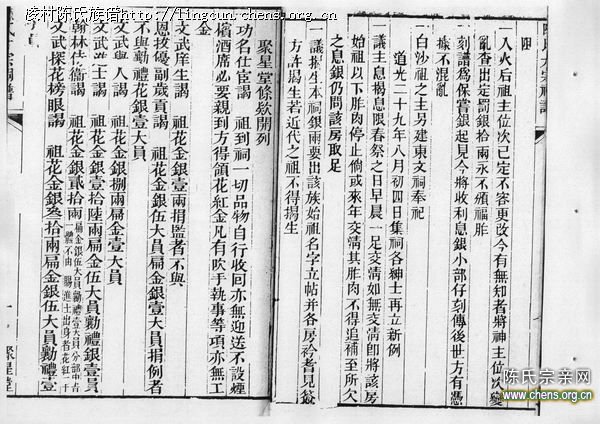 凌村陈氏族谱http://lingcun.chens.org.cn
限
一入火后祖主位次已定不容更改今有無知者將神主位次變
亂查出定罰銀拾兩永不頒福胙
刻譜爲保嘗銀起見今將收利息銀小部仔刻傳後世方有憑
據不混亂
白沙祖之主另建東文祠奉祀
道光二十九年八月初四日集祠各紳士再立新例
一議主息揭息限春祭之日早晨一足交清如無交清卽將該房
始祖以下胙肉停止倘或來年交清其胙肉不得追補至所欠
之息銀仍問該房取足
一議揭生本祠銀兩要出該族始祖名字立帖并各房衿耆見簽
方許揭生若近代之祖不得揭生
聚星堂條欵開列
功名仕宦謁 祖到祠一切品物自行收回亦無迎送不設煙
檳酒席必要親到方得領花紅金凡有吹手執事等項亦無工
金
文武庠生謁 祖花金銀壹兩捐監者不與
恩拔優副歲貢謁 祖花金銀伍大員扁金銀伍大員捐例者
不與勷禮花銀壹大員
文武舉人謁 祖花金銀捌兩扁金壹大員
文武進士謁 祖花金銀壹拾陸兩扁金伍大員勷禮銀壹員
翰林侍衛謁 祖花金銀貳拾兩
文武探花榜眼謁 祖花金銀叁拾兩扁金銀伍大員勷禮壹
聚星堂
陈氏宗亲网
www.chens.org.cn